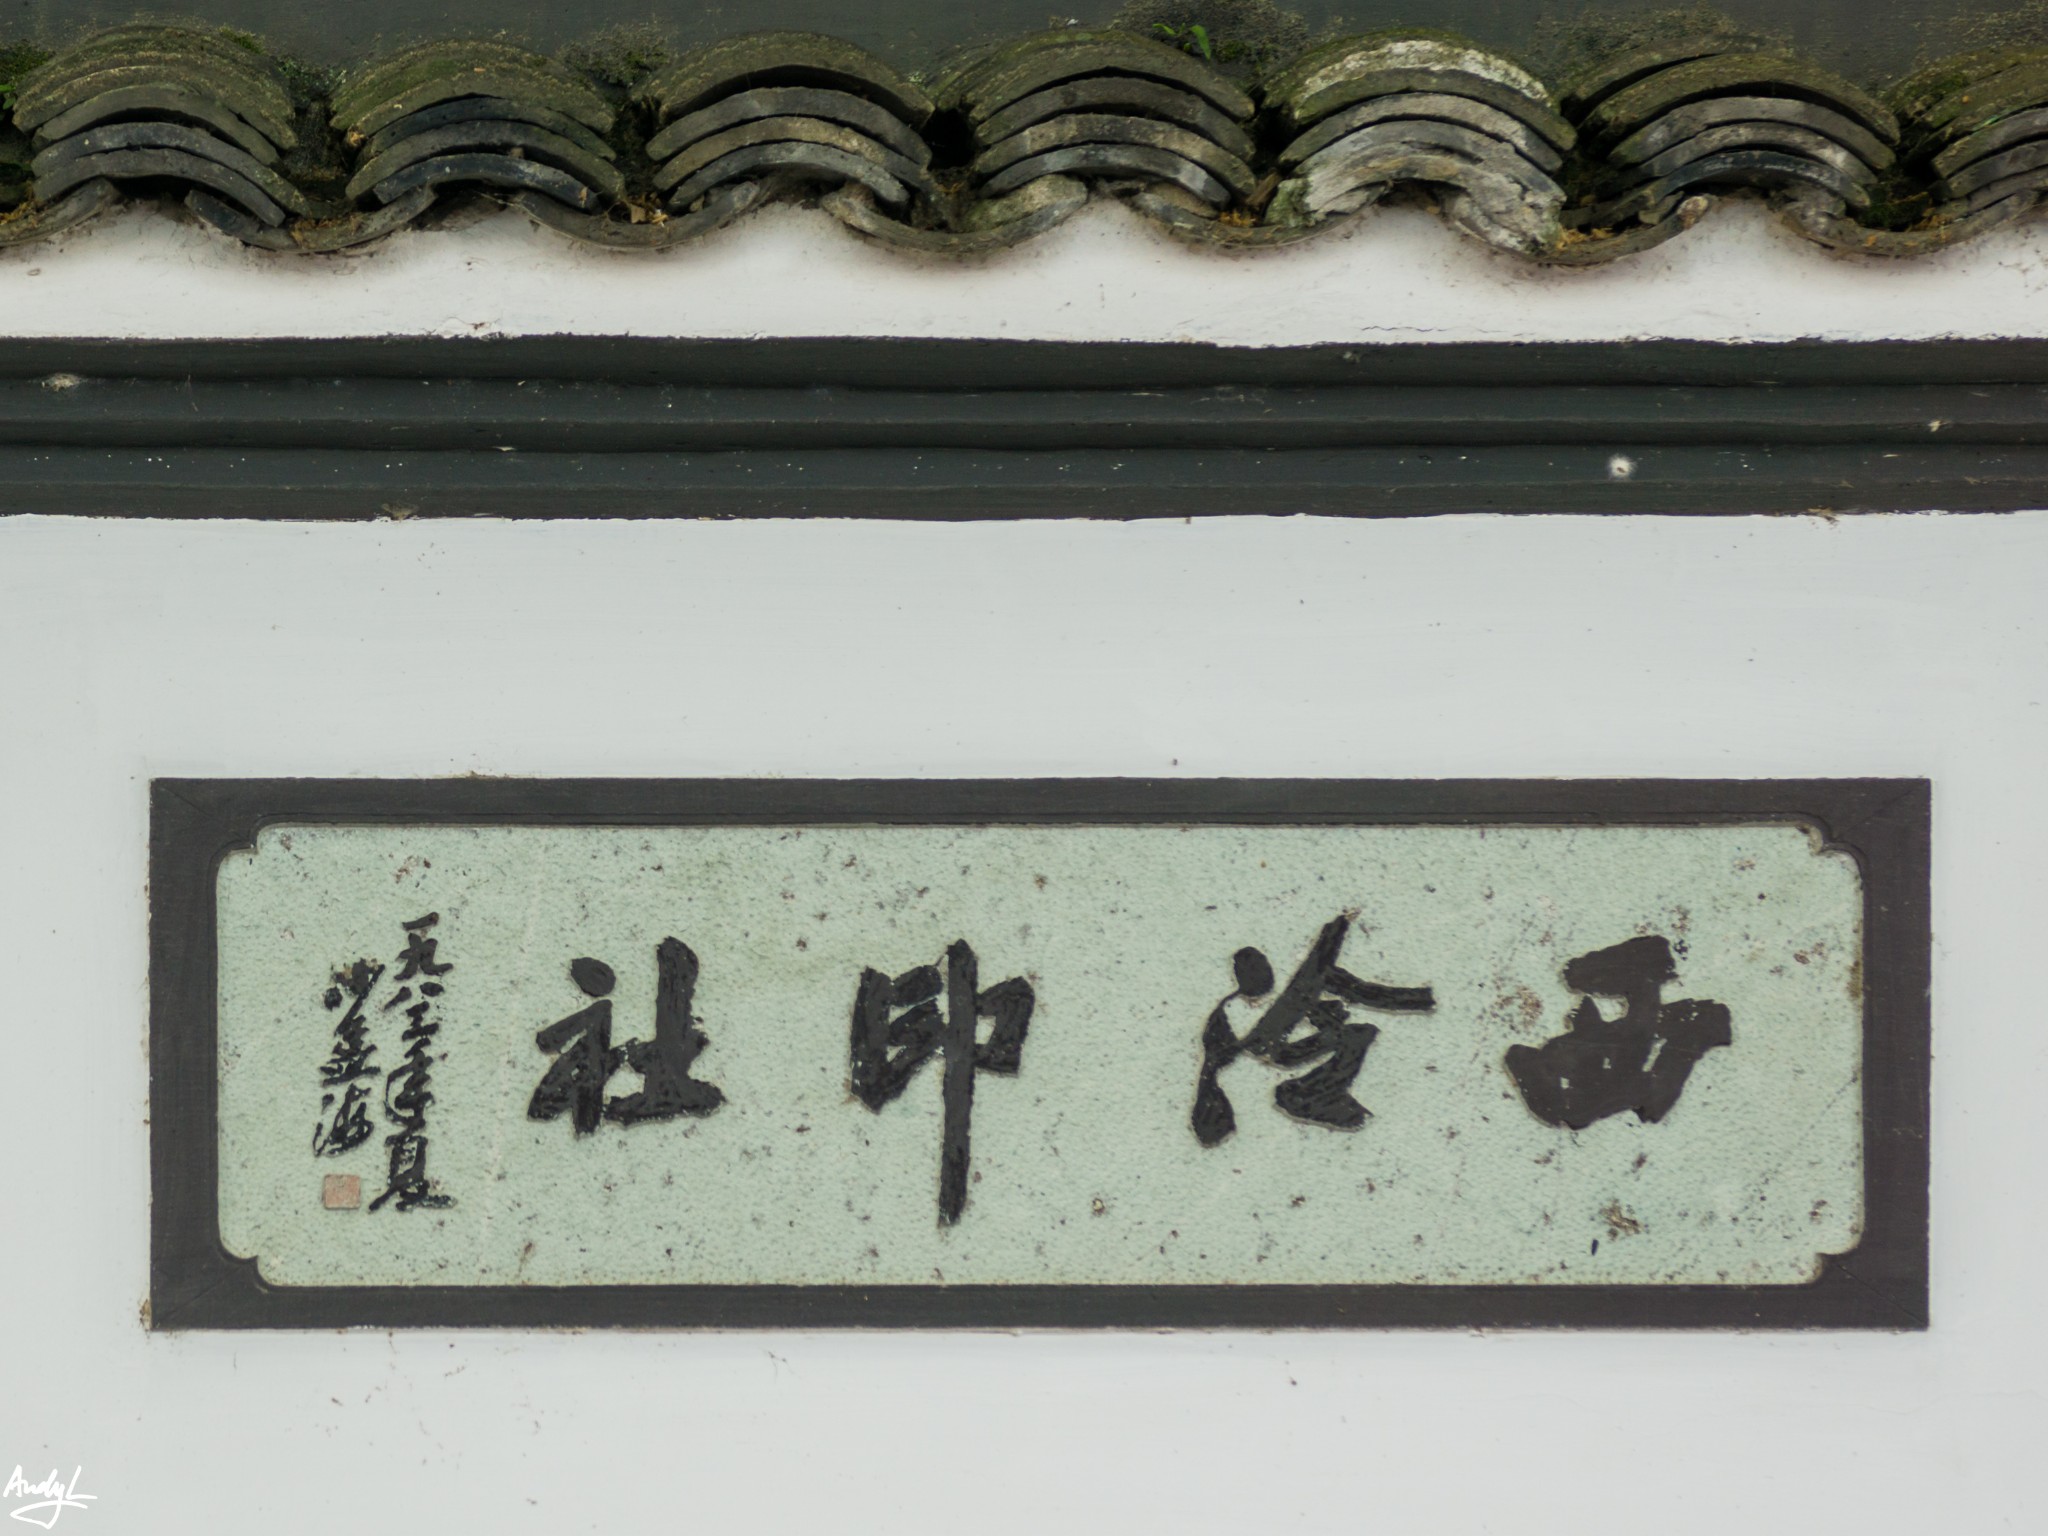 西泠印社
一九八三年夏
沙孟海
AndyL